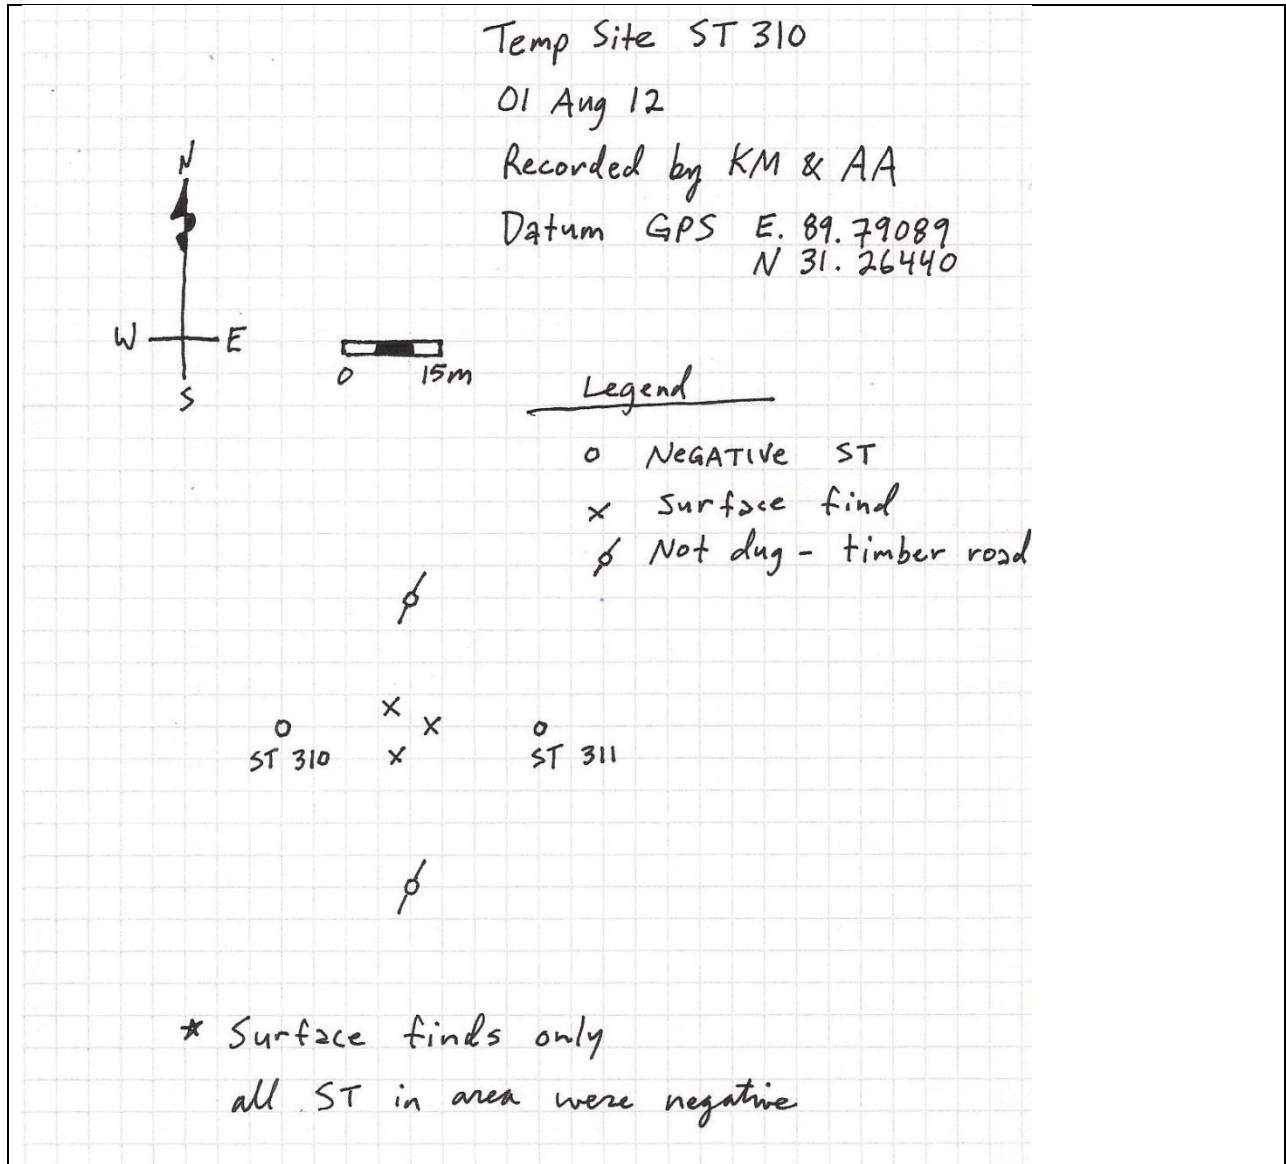 Temp Site ST 310
01 Aug 12
Recorded by KM & AA
Datum GPS E. 89.79089
N 31.26440
N
W E
S
0 15m
Legend
o NEGATIVE ST
x Surface find
Not dug - timber road
ST 310
ST 311
* Surface finds only
all ST in area were negative